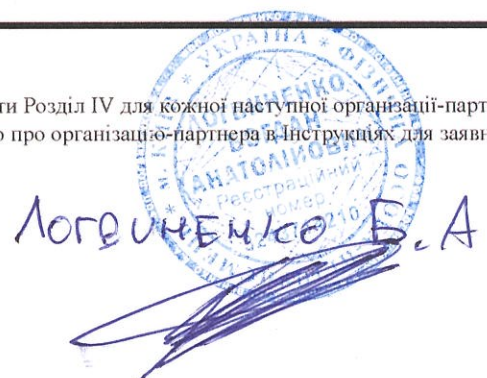 ти Розділ IV для кожної наступної організації-парт
о про організацію-партнера в Інструкціях для заявн
УКРАЇНА * ФІЗИЧНА ОСОБА
* м. КИЇВ *
ЛОГВИНЕНКО
БОГДАН
АНАТОЛІЙОВИЧ
Реєстраційний
номер
Логвиненко Б. А